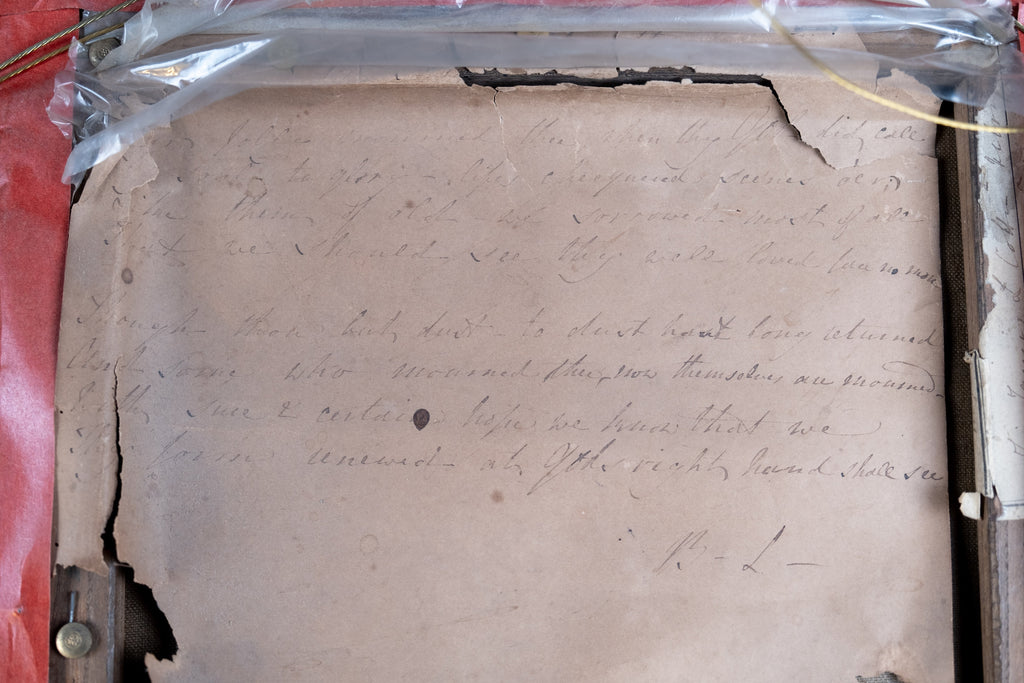 mourned thee when thy God did call
to glory - life's chequered scenes o'er,
them of old - we sorrowed most of all
That we should see thy well loved face no more
Though thou but dust - to dust hast long returned
And some, who mourned thee, now themselves are mourned -
With sure & certain hope we know that we
Thy form renewed - at God's right hand shall see
R - L -